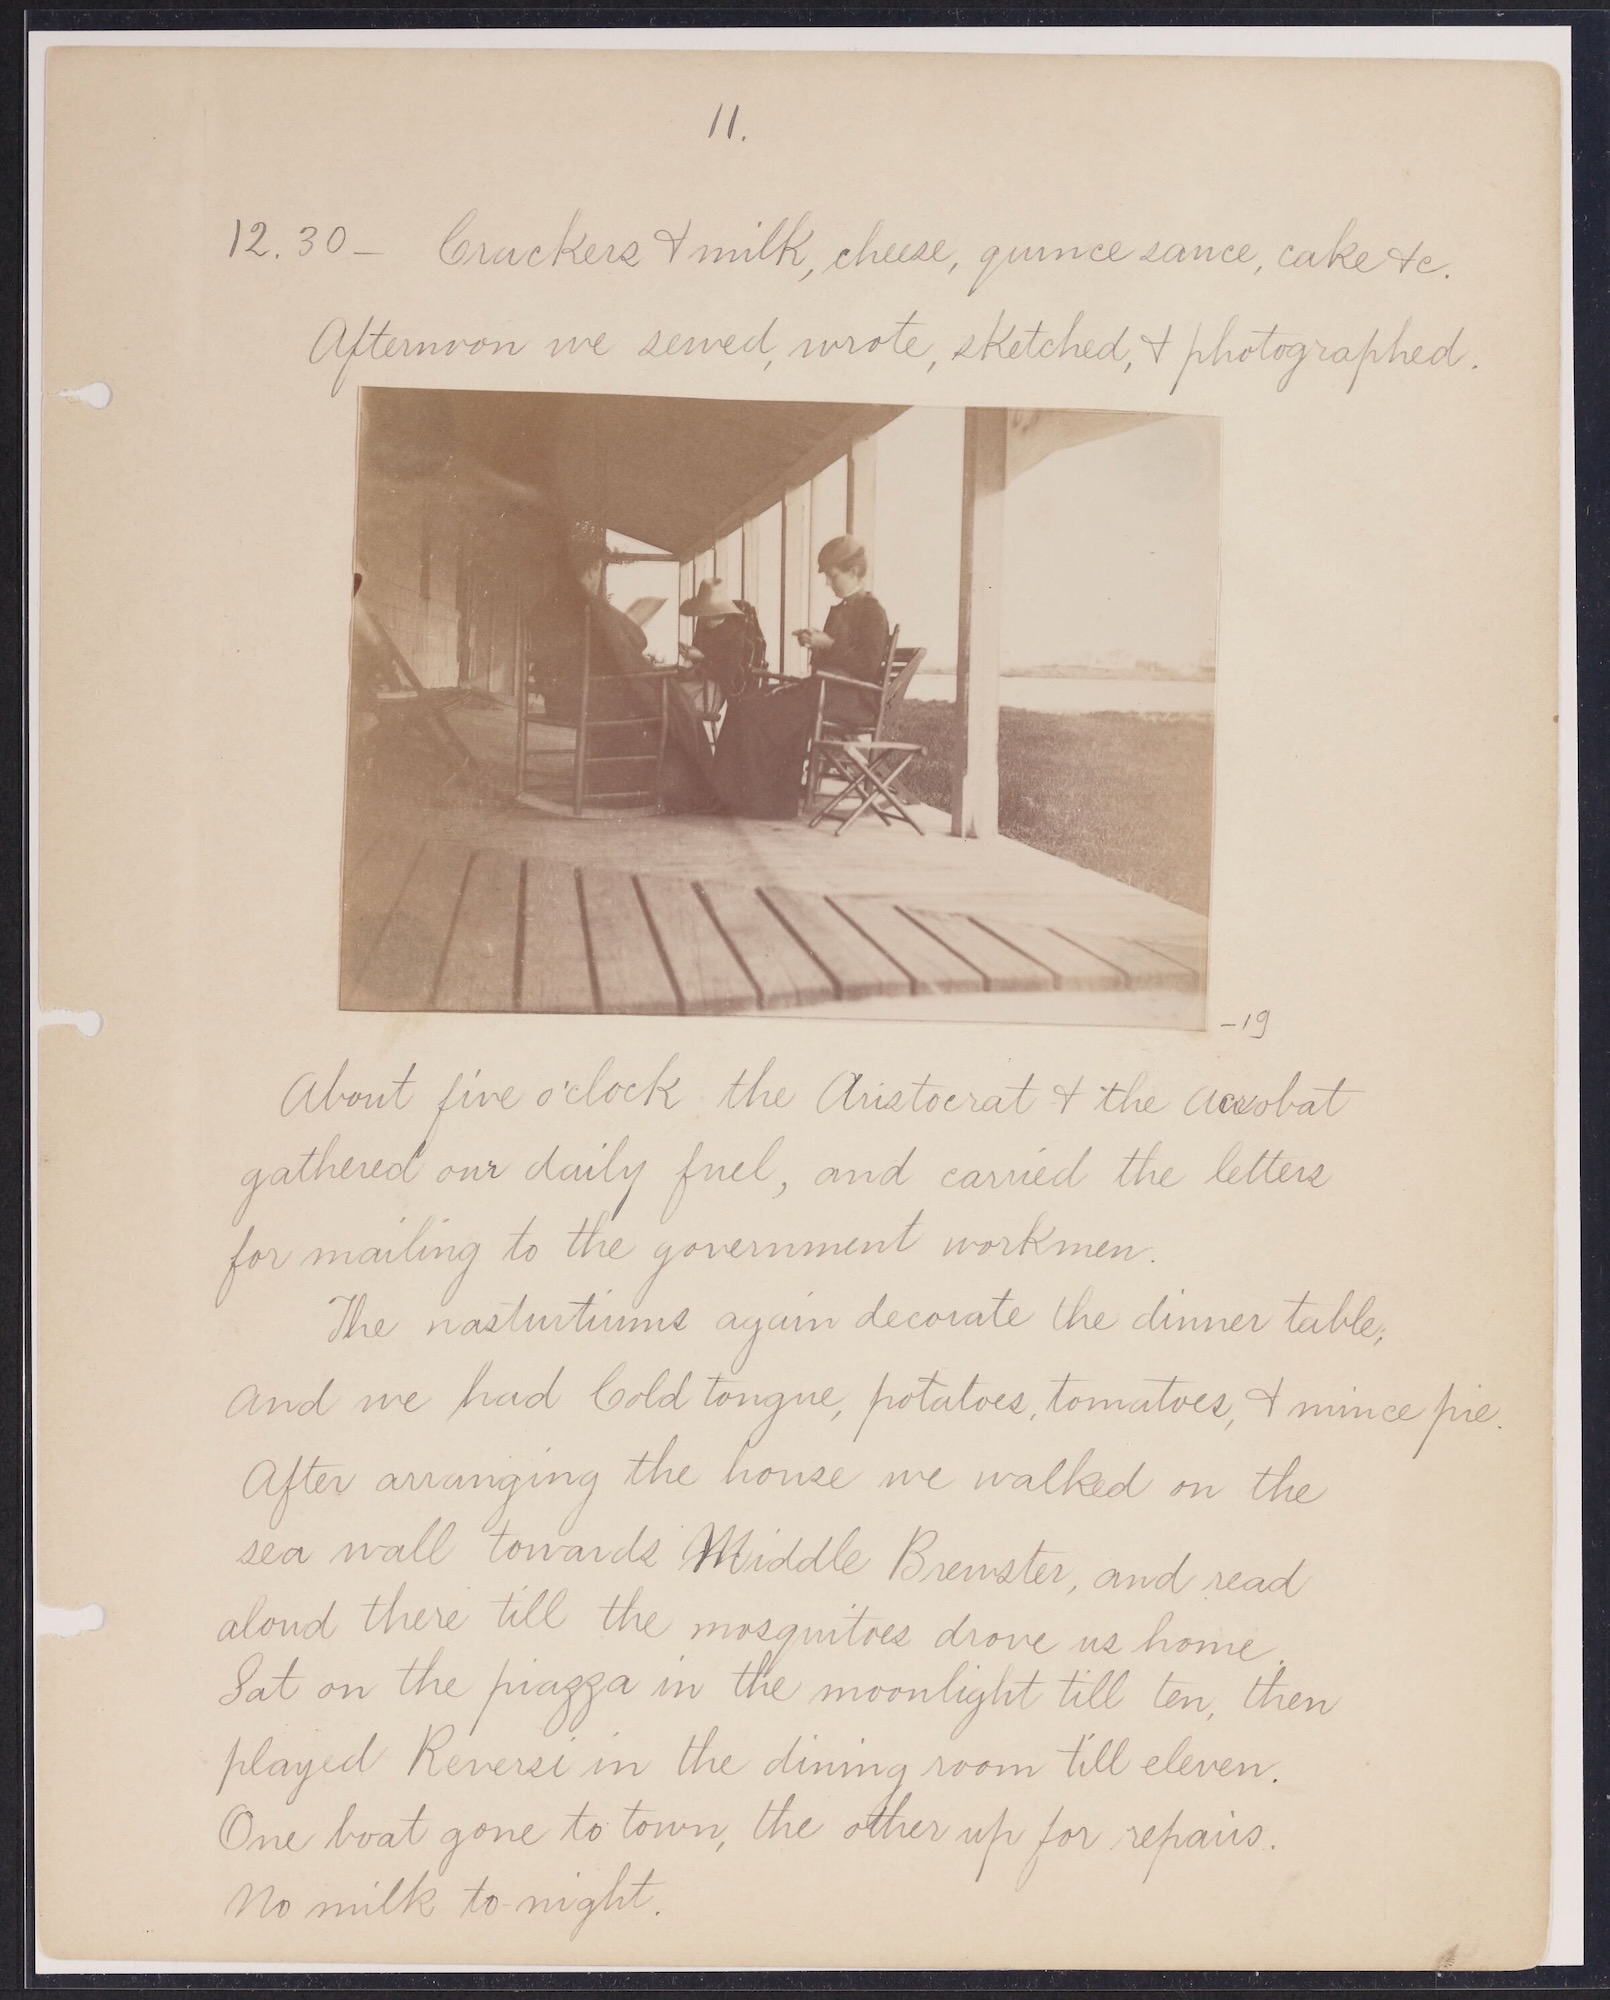 11.
12.30 – Crackers & milk, cheese, quince sauce, cake &c.
Afternoon we sewed, wrote, sketched, & photographed.
–19
About five o'clock the Aristocrat & the Acrobat
gathered our daily fuel, and carried the letters
for mailing to the government workmen.
The nasturtiums again decorate the dinner table;
and we had Cold tongue, potatoes, tomatoes, & mince pie.
After arranging the house we walked on the
sea wall towards Middle Brewster, and read
aloud there till the mosquitoes drove us home.
Sat on the piazza in the moonlight till ten, then
played Reversi in the dining room till eleven.
One boat gone to town, the other up for repairs.
No milk to-night.